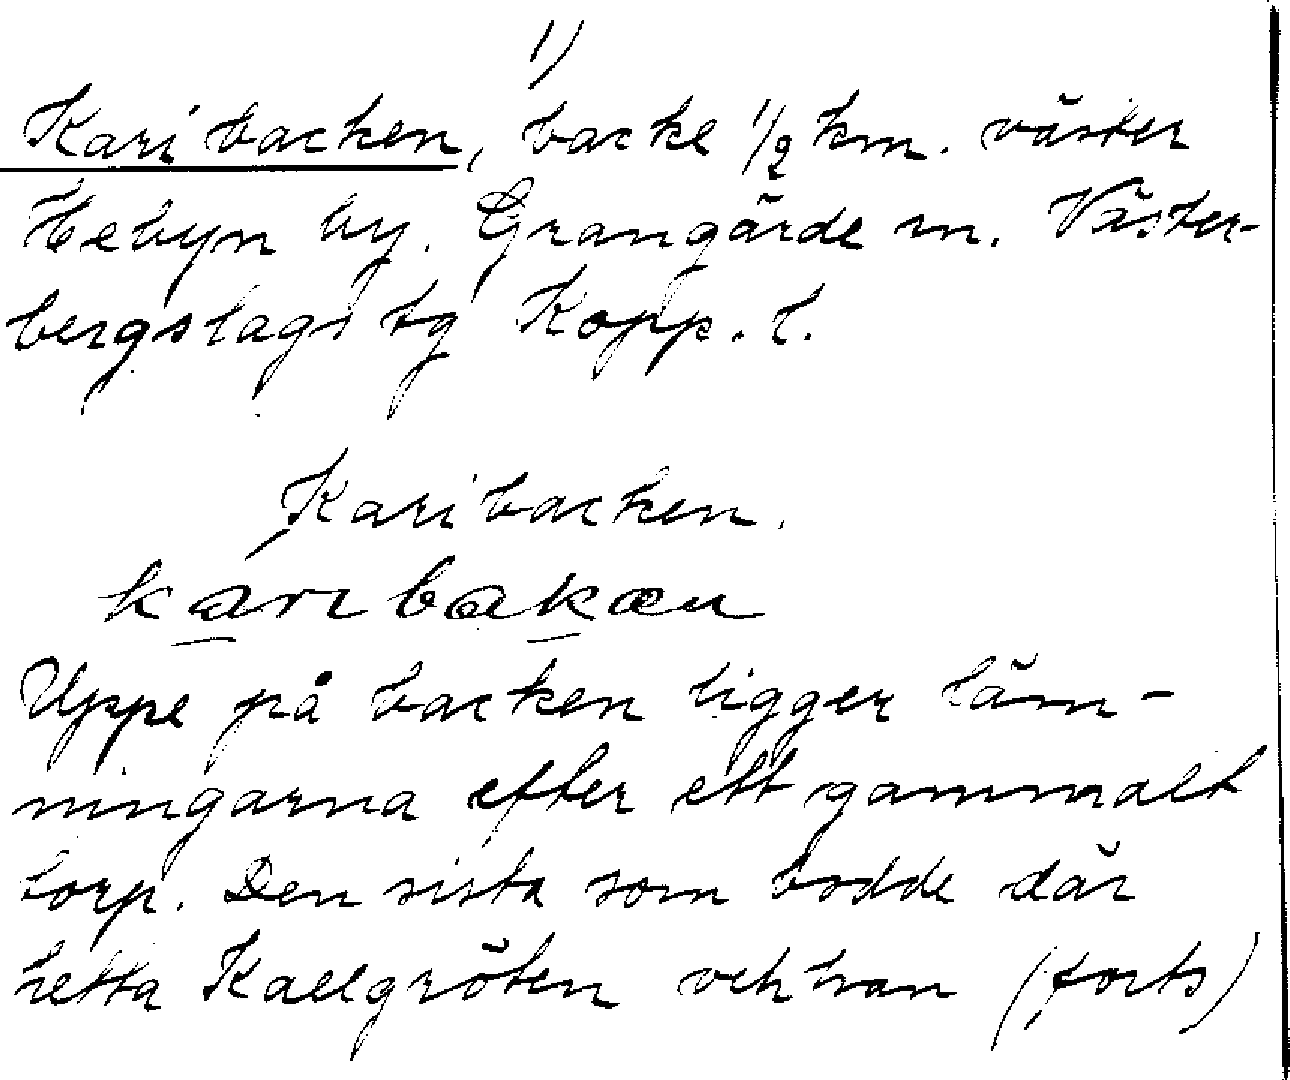 1)
Karibacken, backe 1/2 km. väster
Hebyn by. Grangärde sn. Väster-
bergslags tg Kopp. l.
Karibacken.
karibakæn
Uppe på backen ligger läm-
ningarna efter ett gammalt
torp. Den sista som bodde där
hetta Kallgröten och han (forts)